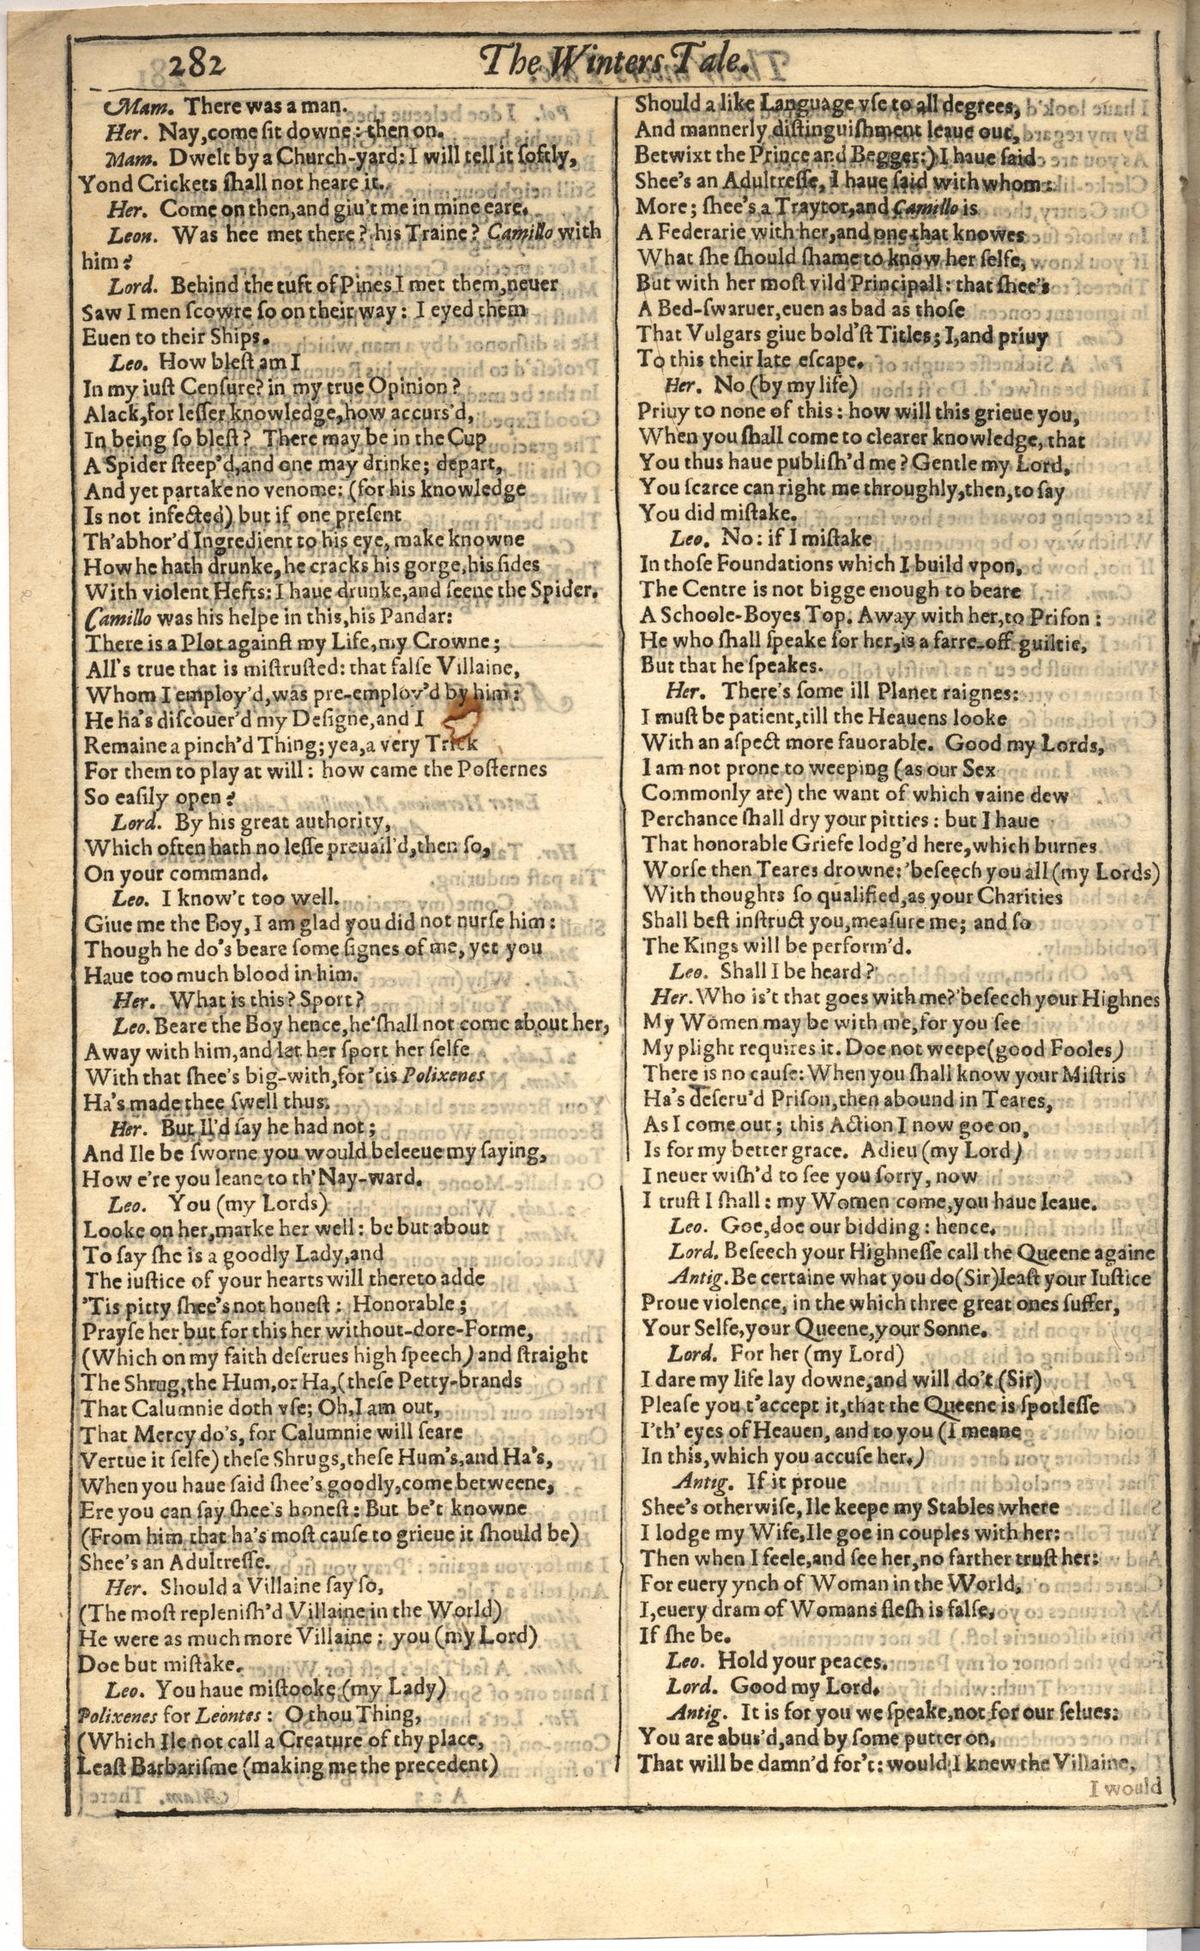 282
The Winters Tale.
Mam. There was a man.
Her. Nay, come sit downe: then on.
Mam. Dwelt by a Church-yard: I will tell it softly,
Yond Crickets shall not heare it.
Her. Come on then, and giu't me in mine eare.
Leon. Was hee met there? his Traine? Camillo with
him?
Lord. Behind the tuft of Pines I met them, neuer
Saw I men scowre so on their way: I eyed them
Euen to their Ships.
Leo. How blest am I
In my iust Censure? in my true Opinion?
Alack, for lesser knowledge, how accurs'd,
In being so blest? There may be in the Cup
A Spider steep'd, and one may drinke; depart,
And yet partake no venome: (for his knowledge
Is not infected) but if one present
Th'abhor'd Ingredient to his eye, make knowne
How he hath drunke, he cracks his gorge, his sides
With violent Hefts: I haue drunke, and seene the Spider.
Camillo was his helpe in this, his Pandar:
There is a Plot against my Life, my Crowne;
All's true that is mistrusted: that false Villaine,
Whom I employ'd, was pre-employ'd by him:
He ha's discouer'd my Designe, and I
Remaine a pinch'd Thing; yea, a very Trick
For them to play at will: how came the Posternes
So easily open?
Lord. By his great authority,
Which often hath no lesse preuail'd, then so,
On your command.
Leo. I know't too well.
Giue me the Boy, I am glad you did not nurse him:
Though he do's beare some signes of me, yet you
Haue too much blood in him.
Her. What is this? Sport?
Leo. Beare the Boy hence, he shall not come about her,
Away with him, and let her sport her selfe
With that shee's big-with, for 'tis Polixenes
Ha's made thee swell thus.
Her. But Il'd say he had not;
And Ile be sworne you would beleeue my saying,
How e're you leane to th'Nay-ward.
Leo. You (my Lords)
Looke on her, marke her well: be but about
To say she is a goodly Lady, and
The iustice of your hearts will thereto adde
'Tis pitty shee's not honest: Honorable;
Prayse her but for this her without-dore-Forme,
(Which on my faith deserues high speech) and straight
The Shrug, the Hum, or Ha, (these Petty-brands
That Calumnie doth vse; Oh, I am out,
That Mercy do's, for Calumnie will seare
Vertue it selfe) these Shrugs, these Hum's, and Ha's,
When you haue said shee's goodly, come betweene,
Ere you can say shee's honest: But be't knowne
(From him that ha's most cause to grieue it should be)
Shee's an Adultresse.
Her. Should a Villaine say so,
(The most replenish'd Villaine in the World)
He were as much more Villaine: you (my Lord)
Doe but mistake.
Leo. You haue mistooke (my Lady)
Polixenes for Leontes: O thou Thing,
(Which Ile not call a Creature of thy place,
Least Barbarisme (making me the precedent)
Should a like Language vse to all degrees,
And mannerly distinguishment leaue out,
Betwixt the Prince and Begger:) I haue said
Shee's an Adultresse, I haue said with whom:
More; shee's a Traytor, and Camillo is
A Federarie with her, and one that knowes
What she should shame to know her selfe,
But with her most vild Principall: that shee's
A Bed-swaruer, euen as bad as those
That Vulgars giue bold'st Titles; I, and priuy
To this their late escape.
Her. No (by my life)
Priuy to none of this: how will this grieue you,
When you shall come to clearer knowledge, that
You thus haue publish'd me? Gentle my Lord,
You scarce can right me throughly, then, to say
You did mistake.
Leo. No: if I mistake
In those Foundations which I build vpon,
The Centre is not bigge enough to beare
A Schoole-Boyes Top. Away with her, to Prison:
He who shall speake for her, is a farre-off guiltie,
But that he speakes.
Her. There's some ill Planet raignes:
I must be patient, till the Heauens looke
With an aspect more fauorable. Good my Lords,
I am not prone to weeping (as our Sex
Commonly are) the want of which vaine dew
Perchance shall dry your pitties: but I haue
That honorable Griefe lodg'd here, which burnes
Worse then Teares drowne: 'beseech you all (my Lords)
With thoughts so qualified, as your Charities
Shall best instruct you, measure me; and so
The Kings will be perform'd.
Leo. Shall I be heard?
Her. Who is't that goes with me? 'beseech your Highnes
My Women may be with me, for you see
My plight requires it. Doe not weepe (good Fooles)
There is no cause: When you shall know your Mistris
Ha's deseru'd Prison, then abound in Teares,
As I come out; this Action I now goe on,
Is for my better grace. Adieu (my Lord)
I neuer wish'd to see you sorry, now
I trust I shall: my Women come, you haue leaue.
Leo. Goe, doe our bidding: hence.
Lord. Beseech your Highnesse call the Queene againe
Antig. Be certaine what you do (Sir) least your Iustice
Proue violence, in the which three great ones suffer,
Your Selfe, your Queene, your Sonne.
Lord. For her (my Lord)
I dare my life lay downe, and will do't (Sir)
Please you t'accept it, that the Queene is spotlesse
I'th' eyes of Heauen, and to you (I meane
In this, which you accuse her.)
Antig. If it proue
Shee's otherwise, Ile keepe my Stables where
I lodge my Wife, Ile goe in couples with her:
Then when I feele, and see her, no farther trust her:
For euery ynch of Woman in the World,
I, euery dram of Womans flesh is false,
If she be.
Leo. Hold your peaces.
Lord. Good my Lord.
Antig. It is for you we speake, not for our selues:
You are abus'd, and by some putter on,
That will be damn'd for't: would I knew the Villaine,
I would